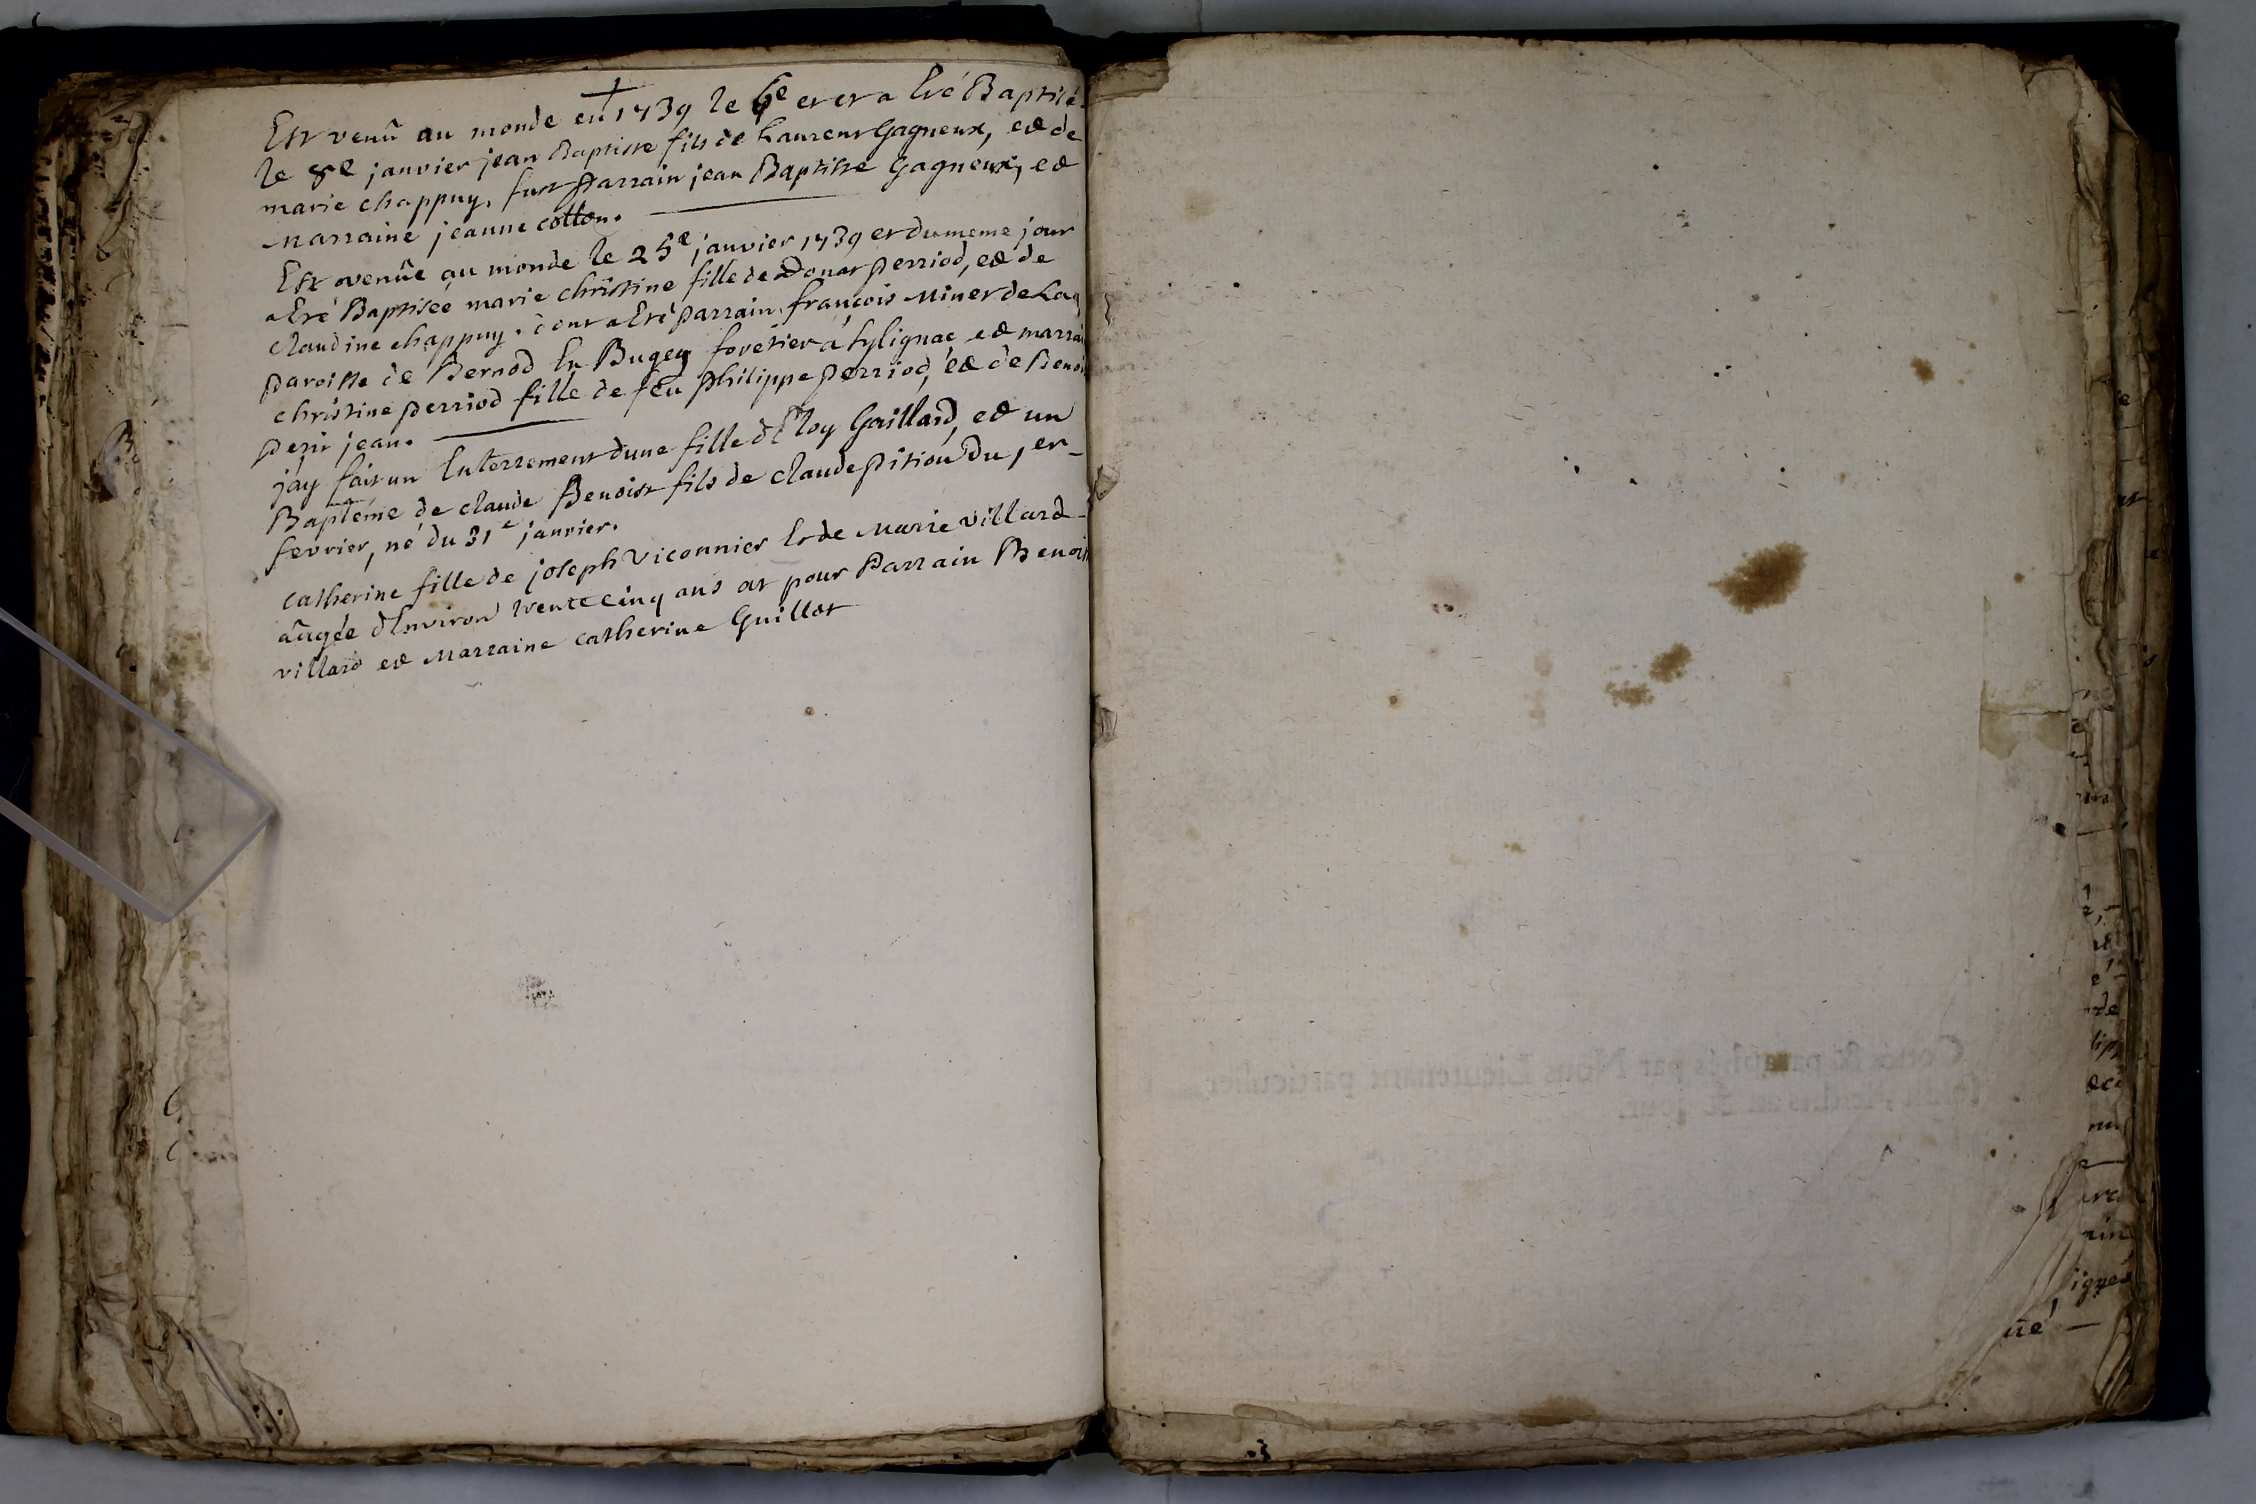 Est venû au monde en 1739 le 6e et et a Eté Baptisé
le 8e janvier jean Baptiste fils de Laurent Gagneux, et de
marie chappuy. fut parrain jean Baptiste Gagneux, et
marraine jeanne cotton.
Est venûe au monde le 25e janvier 1739 et du meme jour
a Eté Baptisée marie christine fille de Donat perriod, et de
claudine chappuy. dont a Eté parrain françois Minet de La
paroisse de Bernod En Bugey foretier á Sylignac et marrai
christine perriod fille de feu philippe perriod, et de Benoi
petit jean.
j'ay fait un Enterrement dune fille d'Eloy Gaillard, et un
Baptéme de claude Benoist fils de claude pitiou Du 1er
fevrier, né du 31e janvier.
catherine fille de joseph Viconnier Et de Marie villard
aûgée d'Environ trente cinq ans at pour Parrain Benoit
villard et Marraine catherine Guillot
Cottés & paraphés par Nous Lieutenant particulier